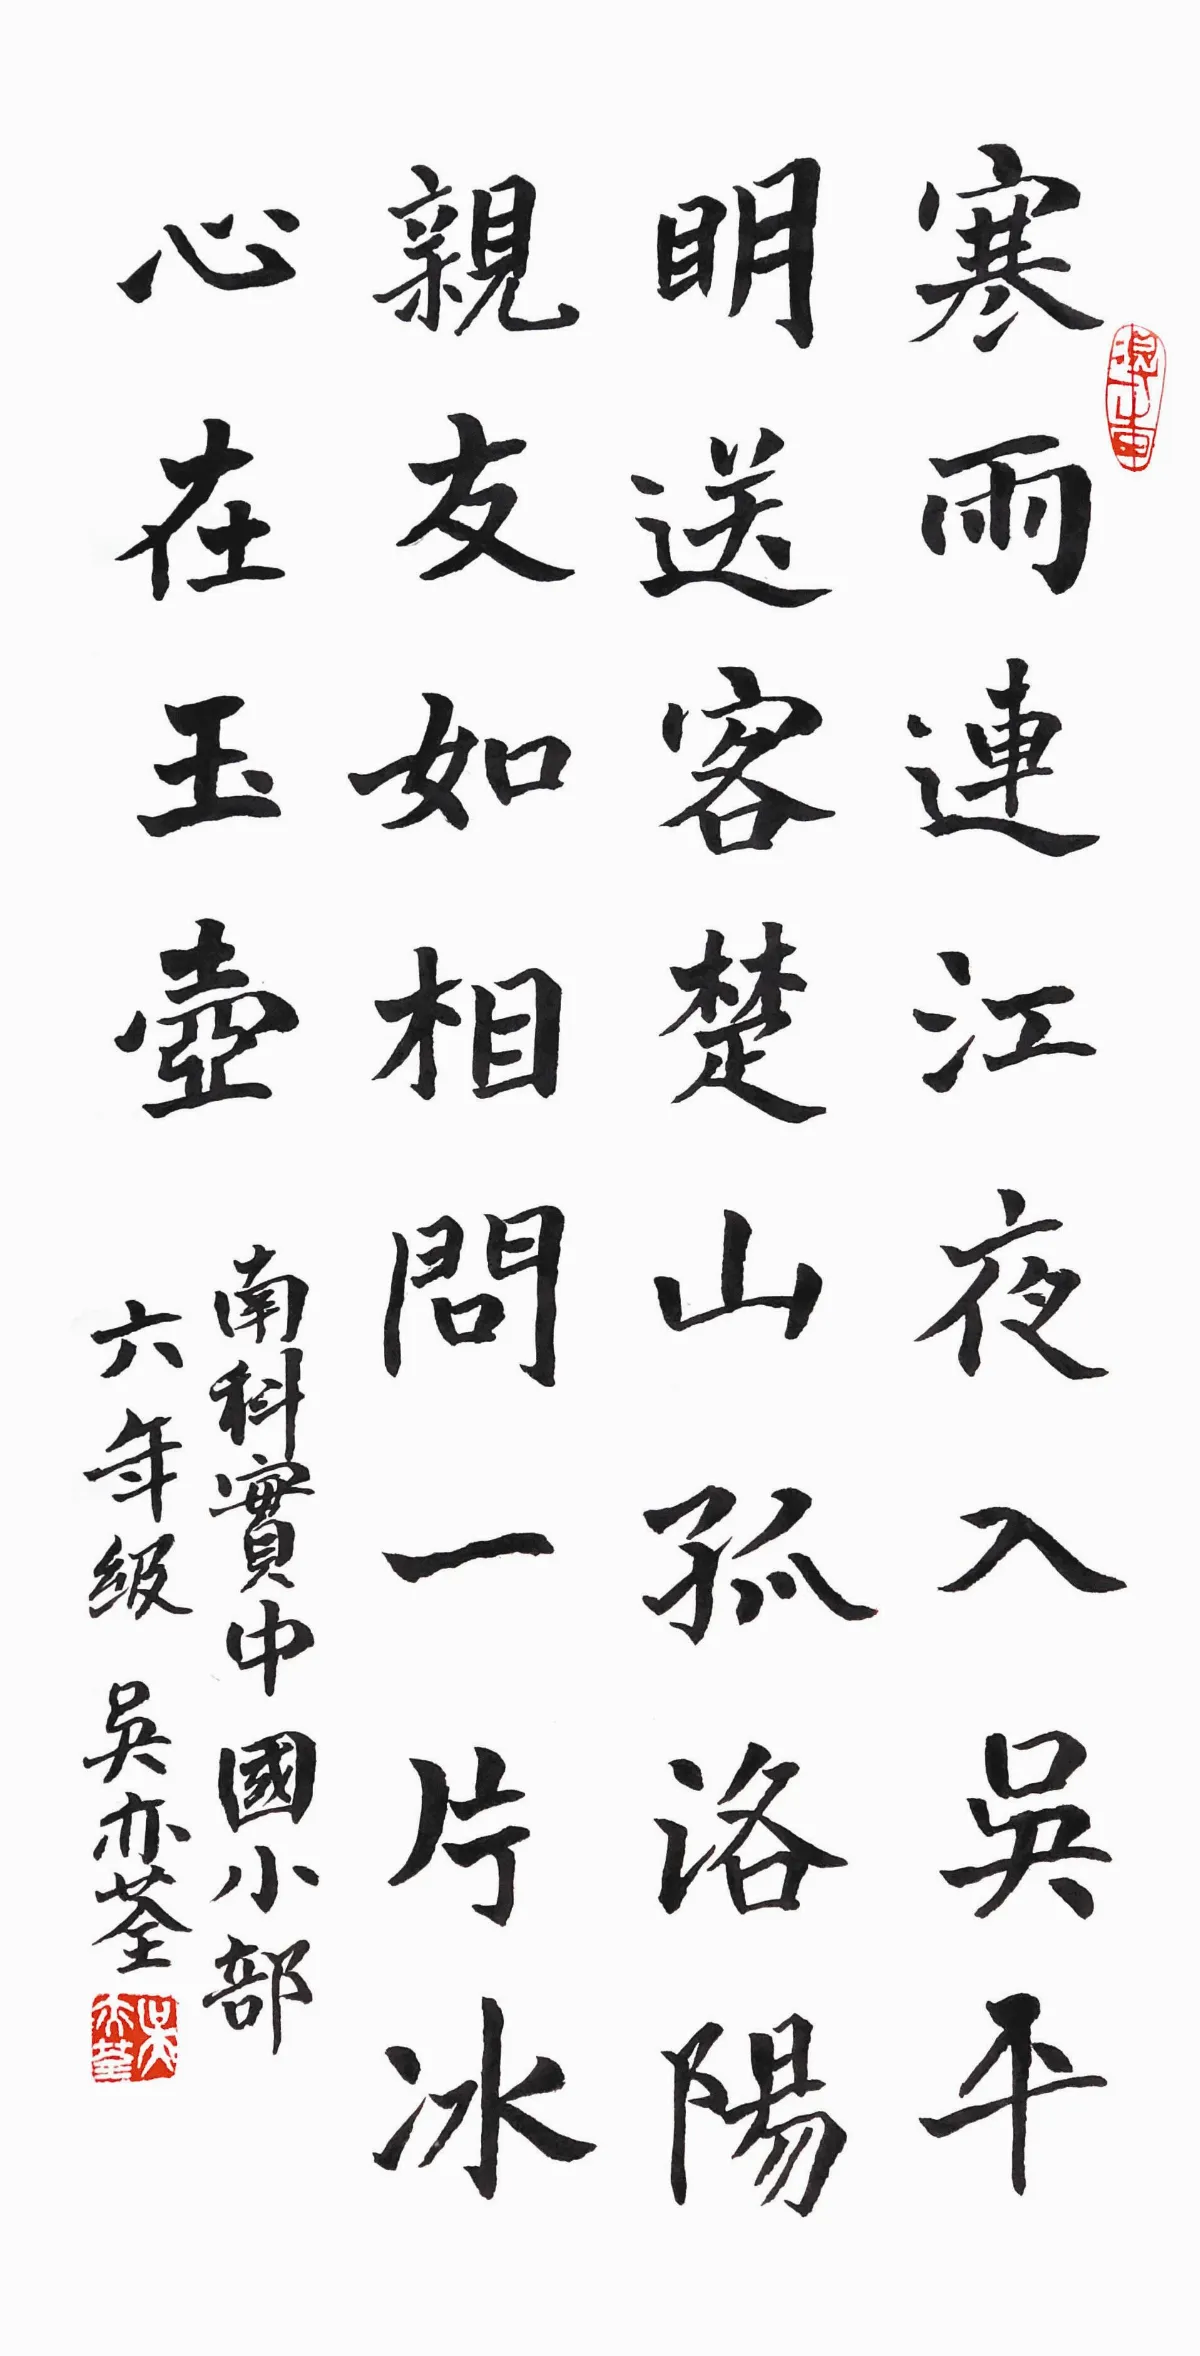 寒雨連江夜入吳平
明送客楚山孤洛陽
親友如相問一片冰
心在玉壺
南科實中國小部
六年級 吳亦荃
吳亦荃